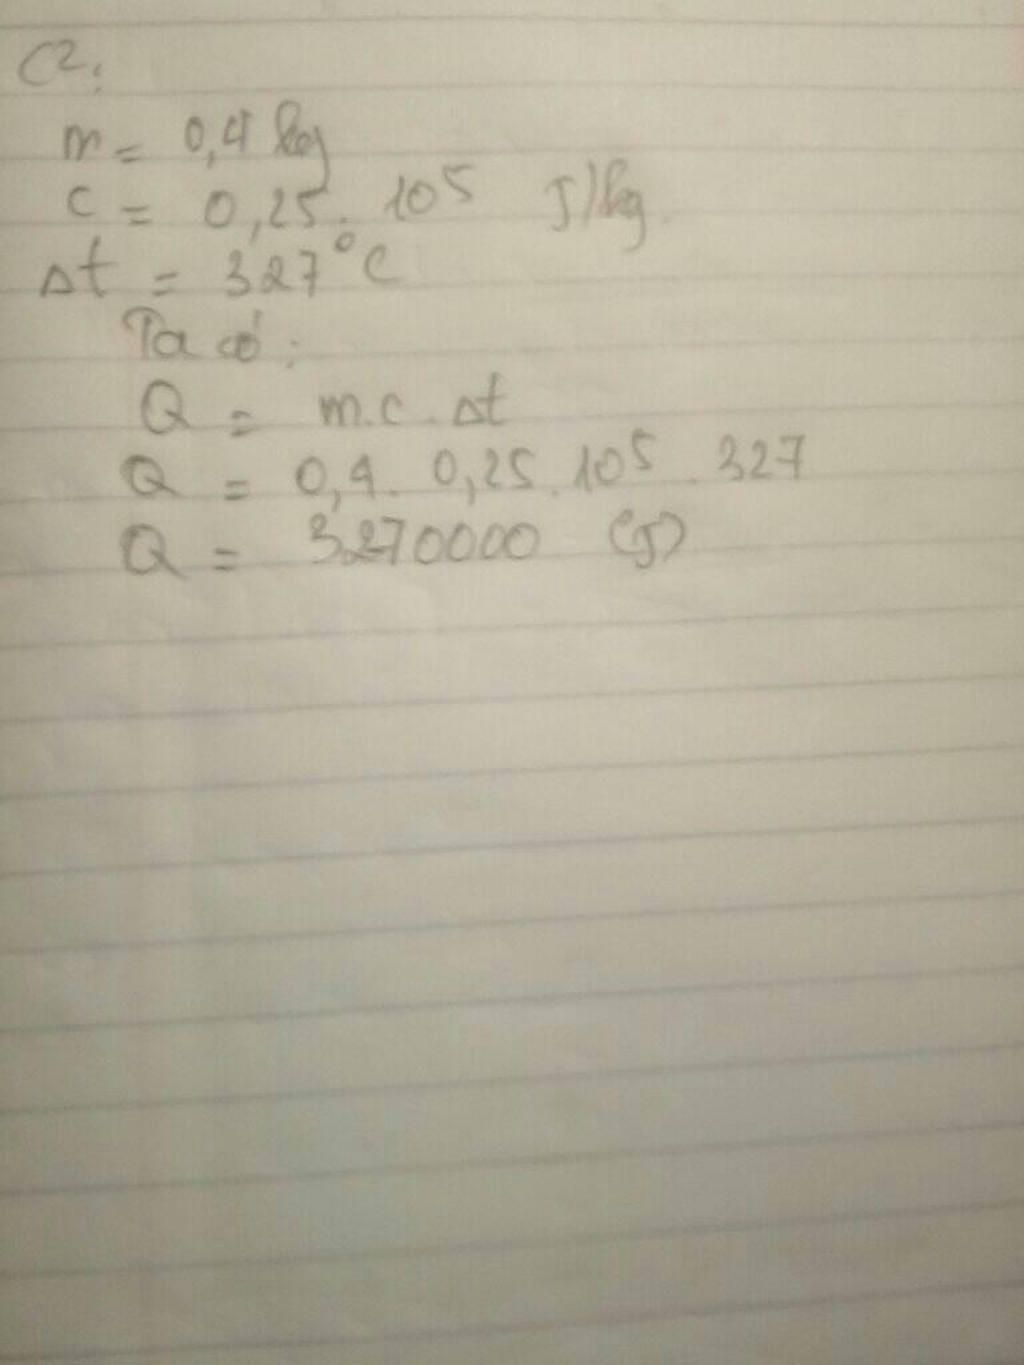 C2:
m = 0,4 kg
c = 0,25. 10⁵ J/kg.
Δt = 327°C
Ta có:
Q = m.c.Δt
Q = 0,4. 0,25. 10⁵. 327
Q = 3270000 (J)